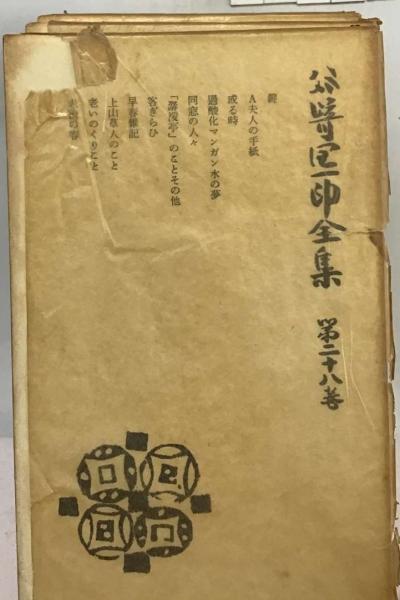 谷崎潤一郎全集 第二十八巻
鍵
A夫人の手紙
或る時
過酸化マンガン水の夢
同窓の人々
「潺湲亭」のことその他
客ぎらひ
早春雑記
上山草人のこと
老いのくりこと
の春